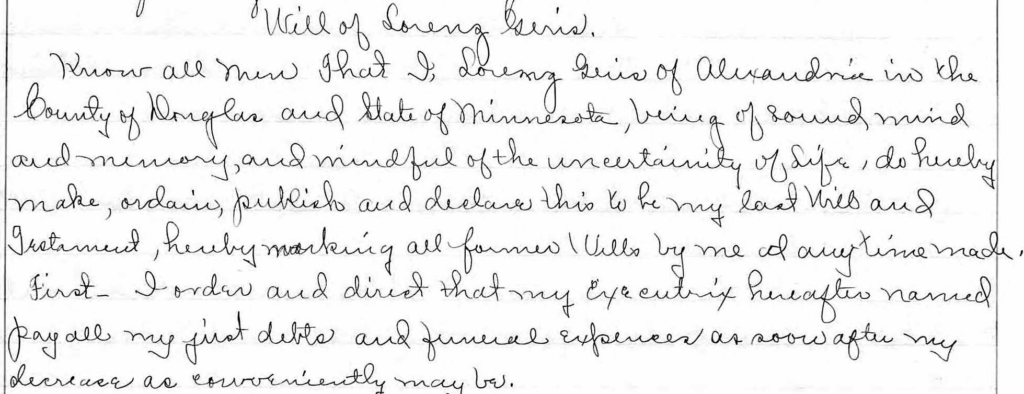 Will of Lorenz Geris.
Know all men That I, Lorenz Geris of Alexandria in the
County of Douglas and State of Minnesota, being of sound mind
and memory, and mindful of the uncertainity of Life, do hereby
make, ordain, publish and declare this to be my last Will and
Testament, hereby revoking all former Wills by me at any time made.
First - I order and direct that my Executrix hereafter named
pay all my just debts and funeral expenses as soon after my
decrease as conveniently may be.